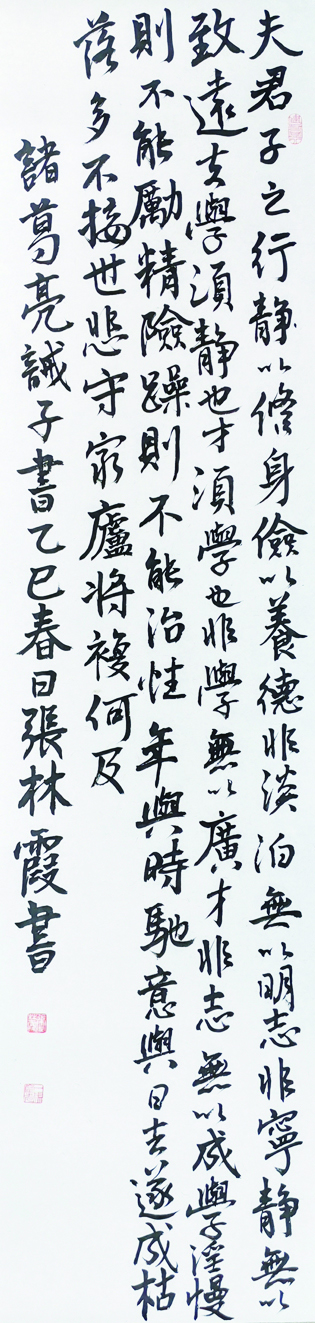 夫君子之行静以脩身儉以養德非淡泊無以明志非寧静無以
致遠夫學須静也才須學也非學無以廣才非志無以成學淫慢
則不能勵精險躁則不能治性年與時馳意與日去遂成枯
落多不接世悲守窮廬將複何及
諸葛亮誡子書乙巳春日張林霞書